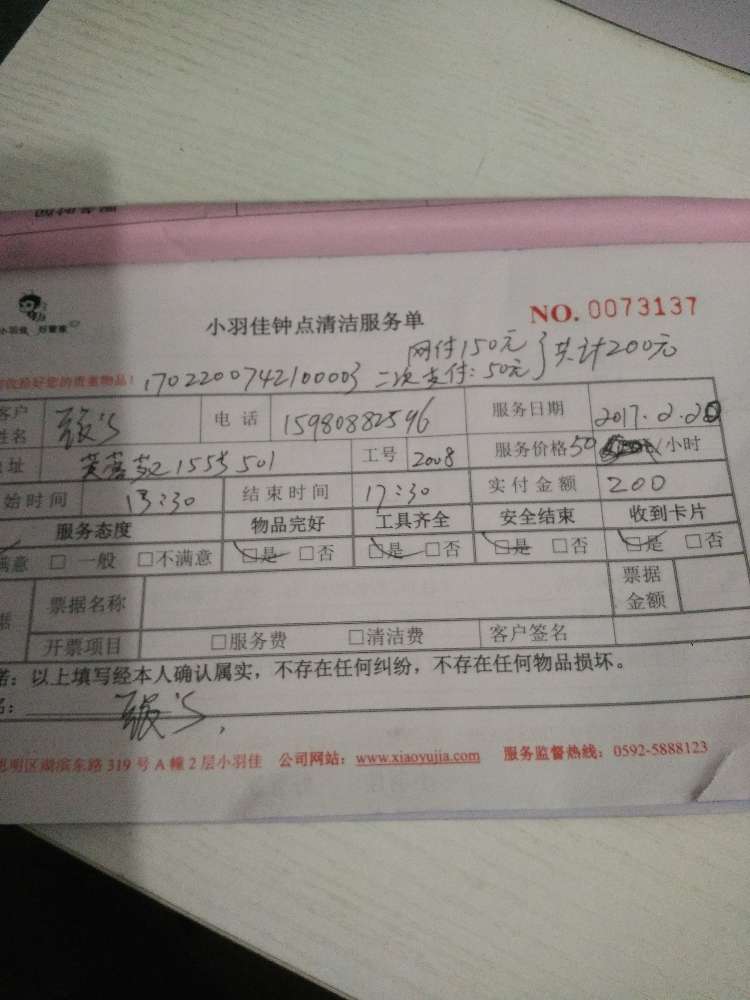 小羽佳 好管家
小羽佳钟点清洁服务单
NO. 0073137
网付150元 } 共计200元
您贵重物品! 17022007421000003 二次支付:50元
客户姓名 电话 15980882596 服务日期 2017.2.20
地址 芙蓉苑155号501 工号 2008 服务价格 50 /小时
始时间 13:30 结束时间 17:30 实付金额 200
服务态度 物品完好 工具齐全 安全结束 收到卡片
满意 □ 一般 □不满意 □是 □否 □是 □否 □是 □否 □是 □否
据 票据名称 票据金额
开票项目 □服务费 □清洁费 客户签名
诺:以上填写经本人确认属实,不存在任何纠纷,不存在任何物品损坏。
名:
思明区湖滨东路 319 号 A 幢 2 层小羽佳 公司网站:www.xiaoyujia.com 服务监督热线:0592-5888123